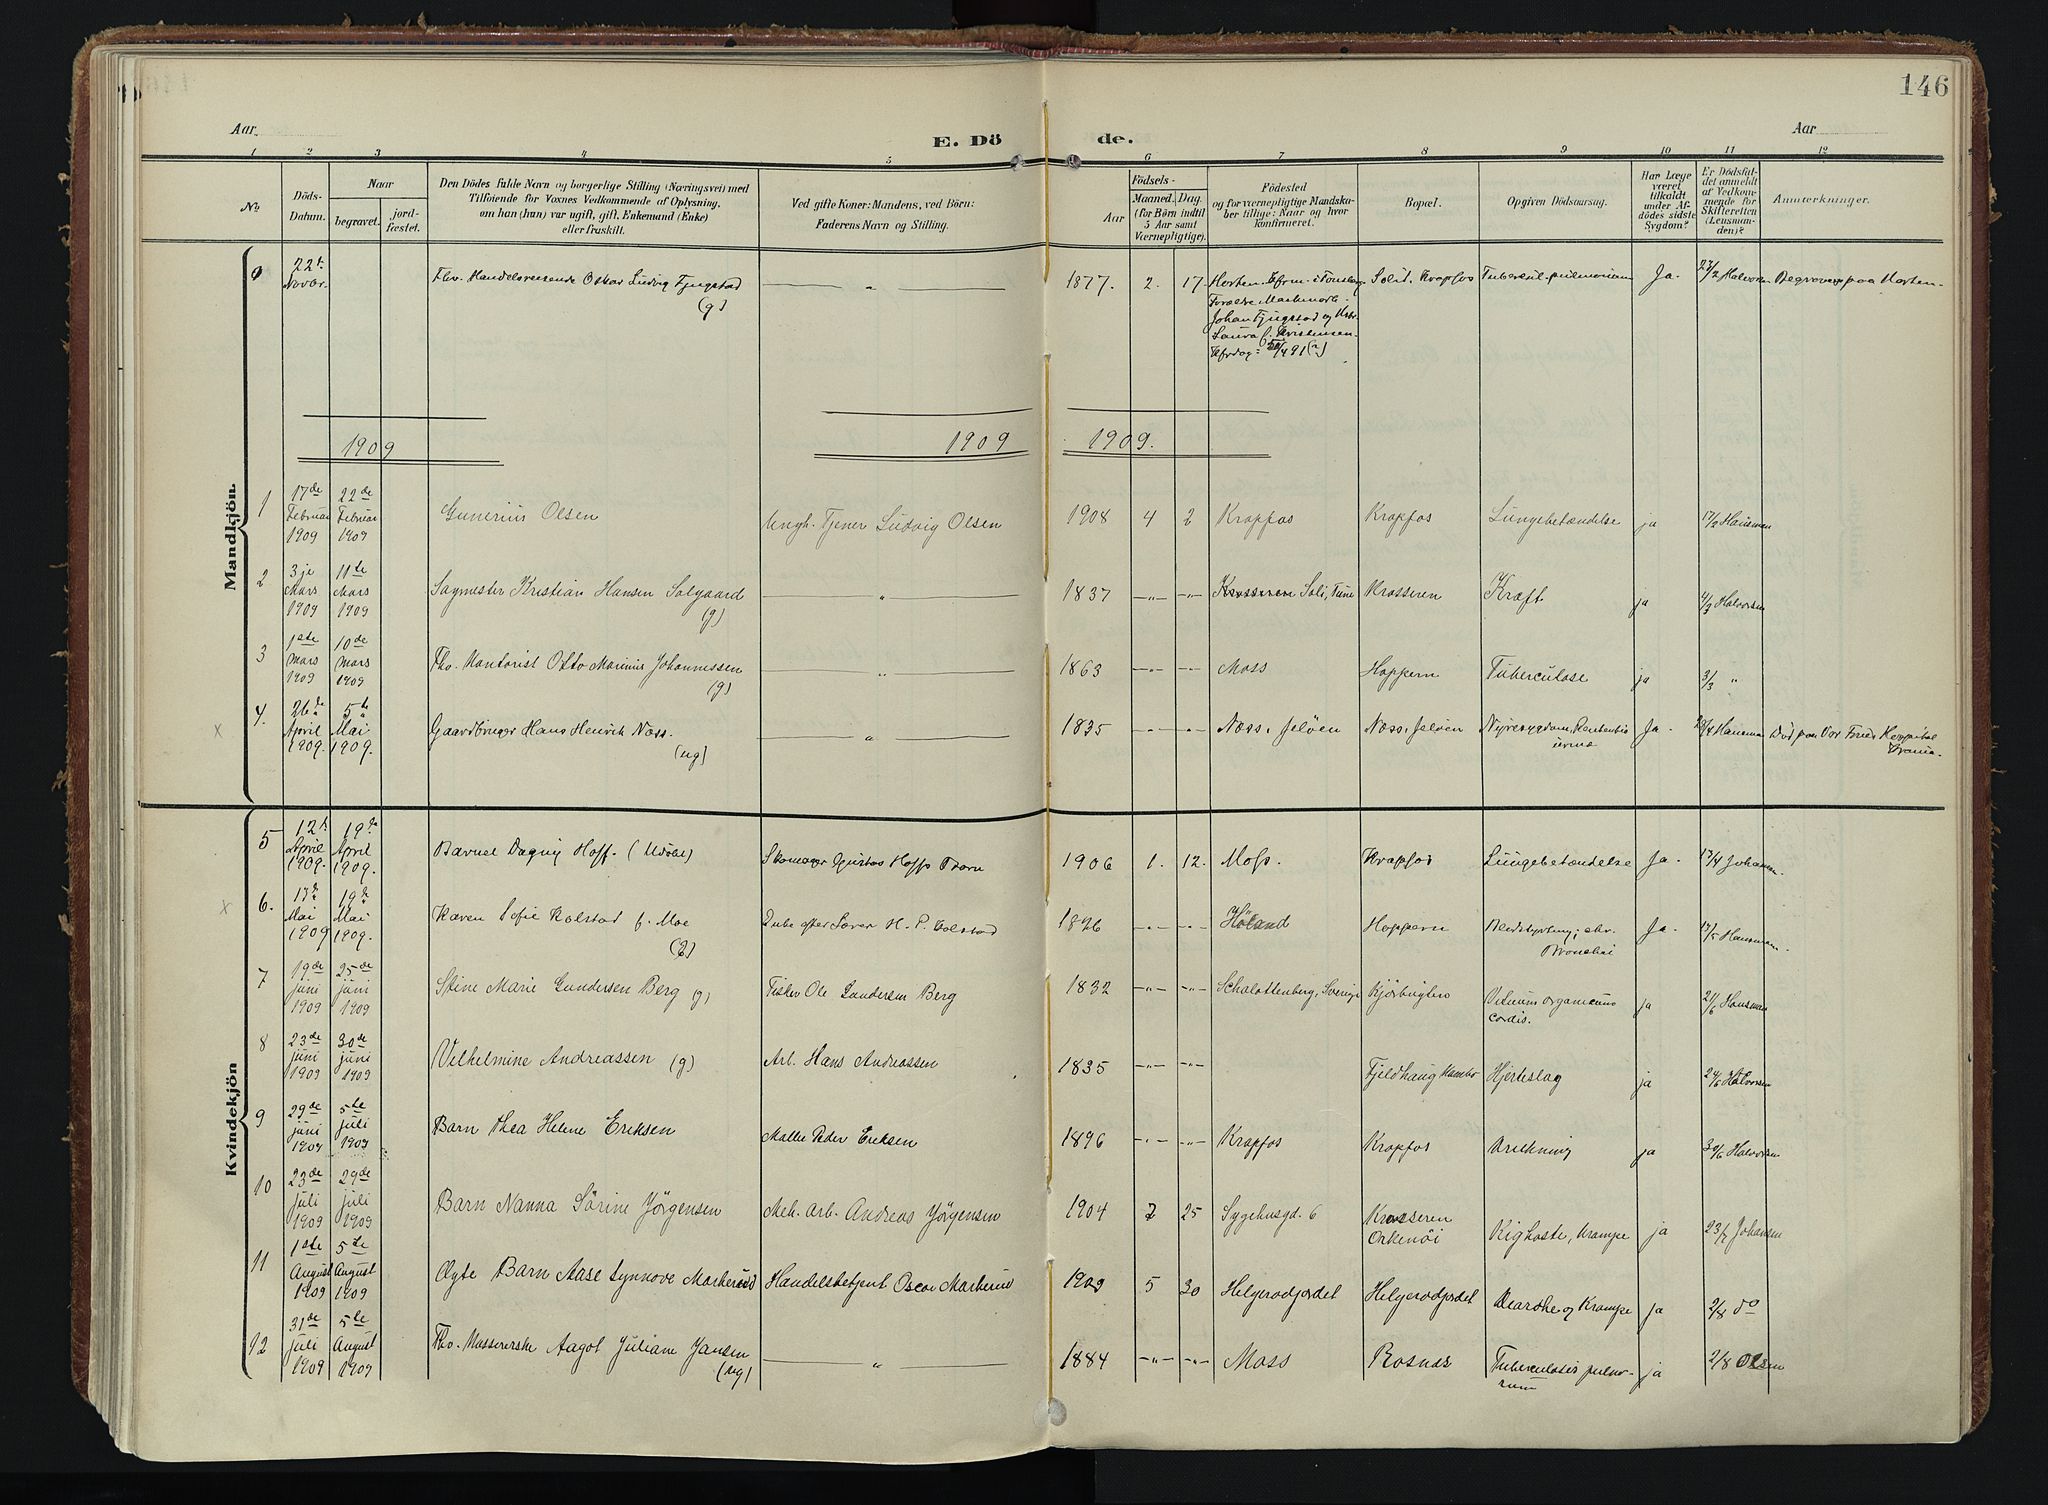 146
Aar
E. Dö
de.
Aar
1 2 3 4 5 6 7 8 9 10 11 12
No.
Döds-
Datum.
Naar
begravet.
jord-
fæstet.
Den Dödes fulde Navn og borgerlige Stilling (Næringsvei) med
Tilföiende for Voxnes Vedkommende af Oplysning,
om han (hun) var ugift, gift, Enkemand (Enke)
eller fraskilt.
Ved gifte Koner: Mandens, ved Börn:
Faderens Navn og Stilling.
Födsels-
Aar
Maaned.
Dag.
(for Börn indtil
5 Aar samt
Værnepligtige).
Födested
og for værnepligtige Mandska-
ber tillige: Naar og hvor
konfirmeret.
Bopæl.
Opgiven Dödsaarsag.
Har Læge
været
tilkaldt
under Af-
dödes sidste
Sygdom?
Er Dödsfal-
det anmeldt
af Vedkom-
mende for
Skifteretten
(Lensman-
den)?
Anmærkninger.
Mandkjön.
22
Novbr.
Fhv. Handelsreisende Oskar Ludvig Fjugstad
(g)
1877. 2. 17
Horten.
Forældre
Johan Fjugstad og
Laura f. Kristensen
Solid. Krapfos
Ja.
Begraves paa Horten
1909
1909
1909.
1
17de
Februar
1909
22de
Februar
1909
Gunerius Olsen
Ungk. Tjener Ludvig Olsen
1908 4 2 Krapfos Krapfos Lungebetændelse ja 17/2 Hansman
2
3je
Mars
1909
11te
Mars
1909
Sagmester Kristian Hansen Solgaard
(g)
1837 Krosseren Soli, Tune Krosseren Kræft. ja 4/3 Halvorsen
3
1ste
Mars
1909
10de
Mars
1909
Fhv. Kontorist Otto Marinus Johannessen
(g)
1863 Moss Hoppern Tuberculose ja 3/3 "
4.
26de
April
1909.
5te
Mai
1909.
x
Gaardbruger Hans Henrik Næss.
(ug)
1835 Næss, Jelöen Næss, Jelöen Nyresygdom, Ja. 28/4 Hansman Död paa Vor Frues Hospital
Krania.
Kvindekjön
5
12
April
1909.
19de
April
1909.
Barnet Dagny Hoff. (Udöbt)
Skomager Gustav Hoffs Barn
1906 1. 12. Moss. Krapfos Lungebetændelse Ja. 13/4 Johansen
6.
17de
Mai
1909
19de
Mai
1909.
x
Karen Sofie Kolstad f. Moe
Enke efter Lærer H. P. Kolstad
Höland Hoppern Ja. 17/5 Hansman.
7
19de
juni
1909
25de
juni
1909
Stine Marie Gundersen Berg (g)
Fisker Ole Gundersen Berg
1832 Schalottenberg, Sverige Vitium organicum
cordis. ja 21/6 Hansman
8
23de
juni
1909
30de
juni
1909
Vilhelmine Andreassen (g)
Arb. Hans Andreassen
1835 Fjeldhaug Kambo Hjerteslag ja 24/6 Halvorsen
9
29de
juni
1909
5te
juli
1909
Barn Thea Helene Eriksen
Matke Peder Eriksen
1896 Krapfos Krapfos Drukning ja 30/6 Halvorsen
10
23de
juli
1909
29de
juli
1909
Barn Nanna Sörine Jörgensen
Mek. arb. Andreas Jörgensen
1904 7 25 Sygehusgd. 6 Krosseren
Orkenöi Kighoste, Krampe ja 23/7 Johansen
11
1ste
August
1909
5te
August
1909
Ægte Barn Aase Synnöve Markerud
Handelsbetjent Oscar Markerud
1909 5 30 Helgerodjordet Helgerodjordet Diarrhe og Krampe ja 2/8 do
12
31de
juli
1909
5te
August
1909
Fhv. Massererske Aagot Juliane Jansen
(ug)
1884 Moss Rosnæs Tuberculosis pulmo-
num ja 2/8 Olsen